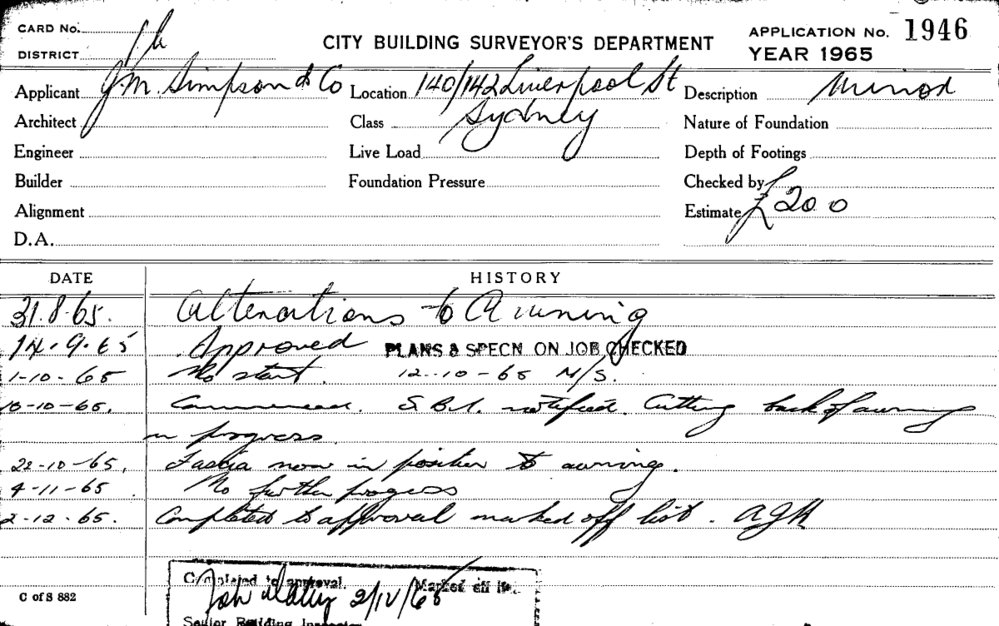 CARD No.
DISTRICT
CITY BUILDING SURVEYOR'S DEPARTMENT
APPLICATION No. 1946
YEAR 1965
Applicant J. M. Simpson & Co Location 140/142 Liverpool St Description Minor
Architect Class Sydney Nature of Foundation
Engineer Live Load Depth of Footings
Builder Foundation Pressure Checked by
Alignment Estimate £200
D.A.
DATE HISTORY
31.8.65. Alterations to Awning
14.9.65 Approved PLANS & SPECN ON JOB CHECKED
1-10-65 No start. 12-10-65 M/S.
Commenced. S.B.I. notified. Cutting back of awning
in progress.
22-10-65. Fascia now in position to awning.
4-11-65 No further progress
2-12-65. Completed to approval marked off list. AJM
Completed to approval. Marked off
2/12/65
C of S 882
Senior Building Inspector